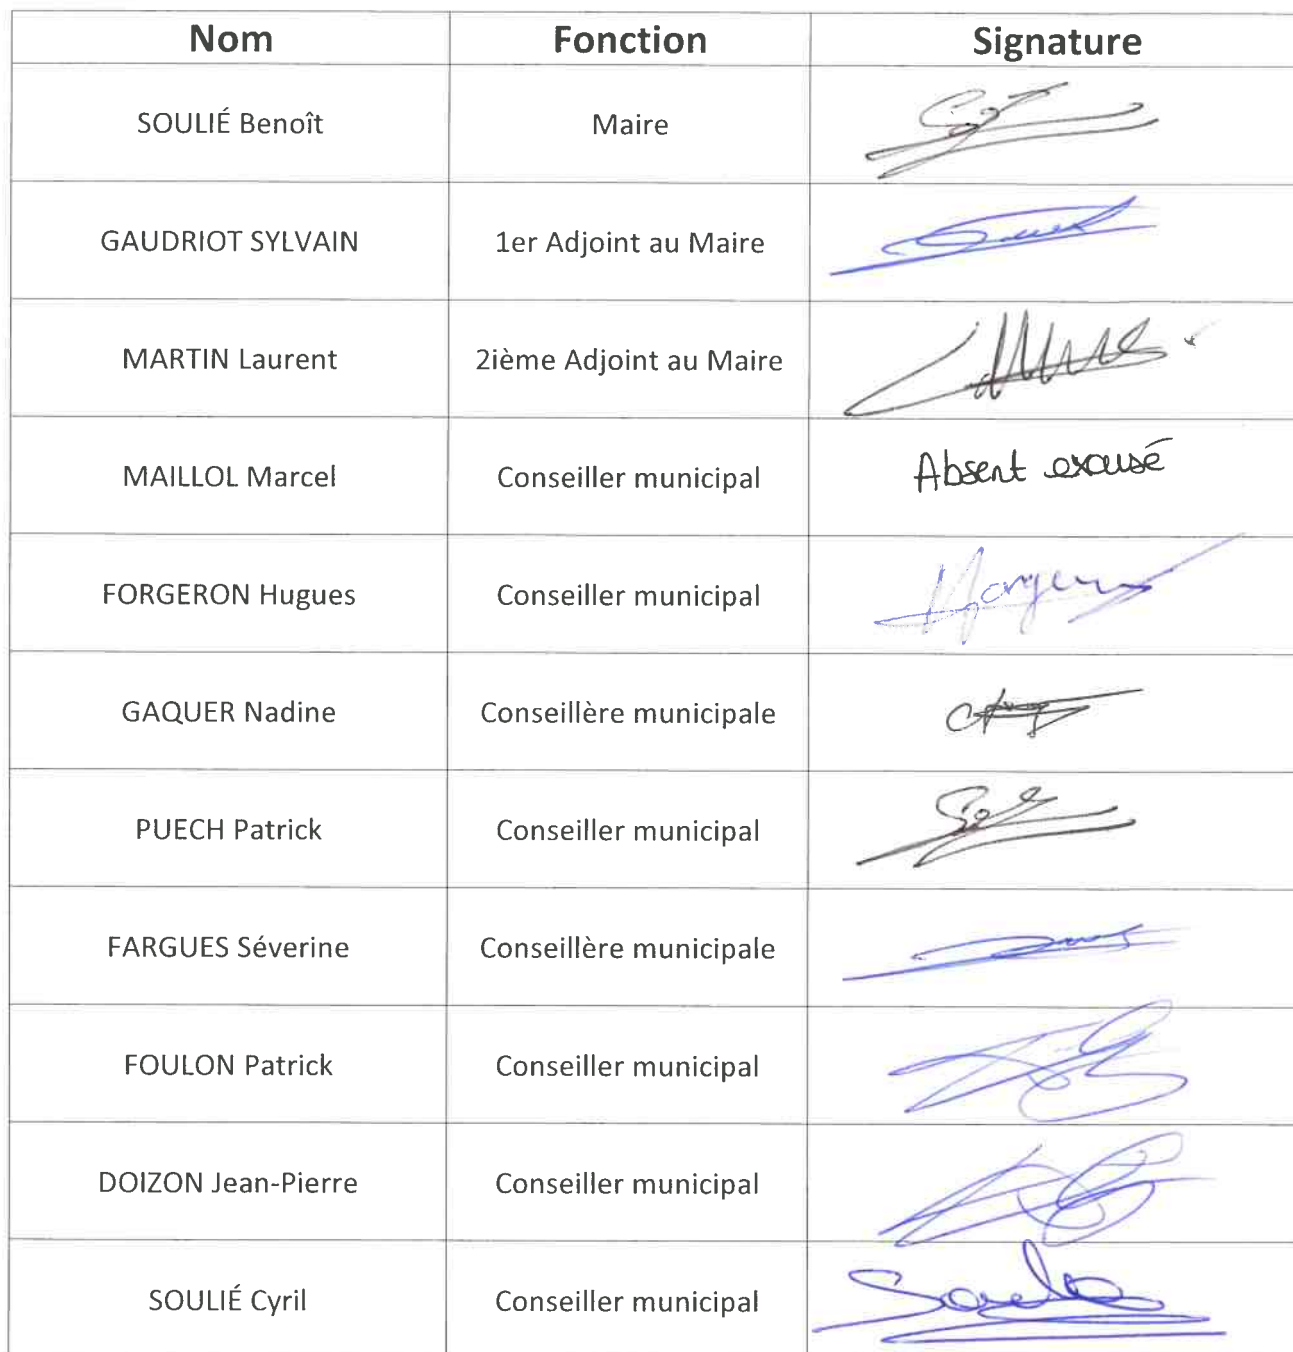 Nom Fonction Signature
SOULIÉ Benoît Maire
GAUDRIOT SYLVAIN 1er Adjoint au Maire
MARTIN Laurent 2ième Adjoint au Maire
MAILLOL Marcel Conseiller municipal Absent excusé
FORGERON Hugues Conseiller municipal
GAQUER Nadine Conseillère municipale
PUECH Patrick Conseiller municipal
FARGUES Séverine Conseillère municipale
FOULON Patrick Conseiller municipal
DOIZON Jean-Pierre Conseiller municipal
SOULIÉ Cyril Conseiller municipal